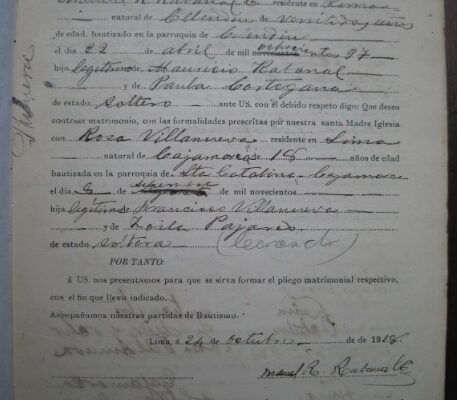 residente en Lima
natural de Celendin de veintidos años
de edad, bautizado en la parroquia de
el día 22 de abril de mil novecientos ochocientos 97
hijo legítimo de Mauricio Rabanal
y de Paula Cortegana
de estado soltero ante US. con el debido respeto digo: Que deseo
contraer matrimonio, con las formalidades prescritas por nuestra Santa Madre Iglesia
con Rosa Villanueva residente en Lima
natural de Cajamarca de 18 años de edad
bautizada en la parroquia de Sta Catalina Cajamarca
el día 8 de septiembre de mil novecientos.
hija legítima de Francisco Villanueva
y de Zoila Pajares
de estado soltera
POR TANTO:
á US. nos presentamos para que se sirva formar el pliego matrimonial respectivo,
con el fin que llevo indicado.
Acompañamos nuestras partidas de Bautismo.
Lima á 24 de octubre de 1918.
Manuel R. Rabanal C